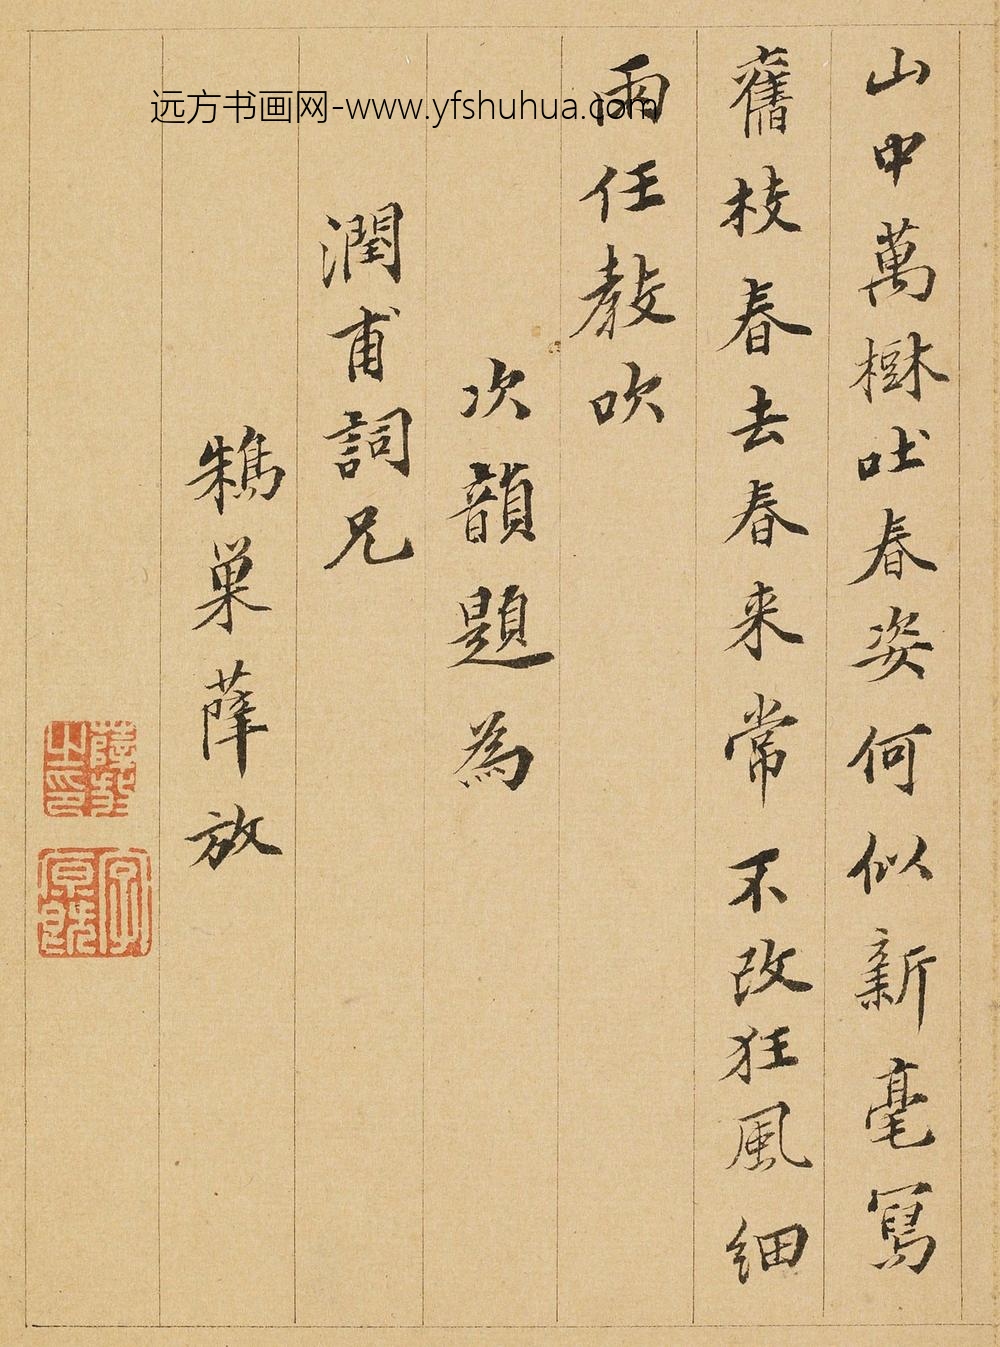 远方书画网-www.yfshuhua.com
山中萬樹吐春姿何似新毫寫
舊枝春去春来常不改狂風細
雨任教吹
次韻題為
潤甫詞兄
巢薛放